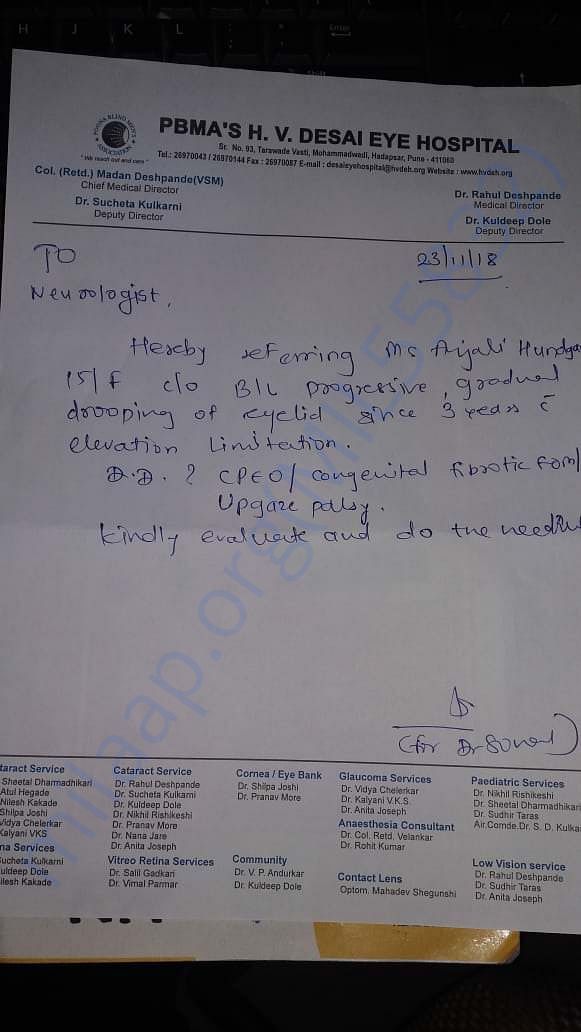 H J K L Enter
POONA BLIND MEN'S ASSOCIATION
"We reach out and care"
PBMA'S H. V. DESAI EYE HOSPITAL
Sr. No. 93, Tarawade Vasti, Mohammadwadi, Hadapsar, Pune - 411060
Tel.: 26970043 / 26970144 Fax : 26970087 E-mail : desaieyehospital@hvdeh.org Website : www.hvdeh.org
Col. (Retd.) Madan Deshpande(VSM)
Chief Medical Director
Dr. Sucheta Kulkarni
Deputy Director
Dr. Rahul Deshpande
Medical Director
Dr. Kuldeep Dole
Deputy Director
TO
23/11/18
Neurologist,
Hereby referring Ms Anjali
15/F c/o B/L progressive, gradual
drooping of eyelid since 3 years c̄
elevation limitation.
D.D. ? CPEO/ congenital fibrotic form/
Upgaze palsy.
Kindly evaluate and do the
(for Dr Sonal)
milaap.org
taract Service
Sheetal Dharmadhikari
Atul Hegade
Nilesh Kakade
Shilpa Joshi
Vidya Chelerkar
Kalyani VKS
na Services
Sucheta Kulkarni
uldeep Dole
ilesh Kakade
Cataract Service
Dr. Rahul Deshpande
Dr. Sucheta Kulkarni
Dr. Kuldeep Dole
Dr. Nikhil Rishikeshi
Dr. Pranav More
Dr. Nana Jare
Dr. Anita Joseph
Vitreo Retina Services
Dr. Salil Gadkari
Dr. Vimal Parmar
Cornea / Eye Bank
Dr. Shilpa Joshi
Dr. Pranav More
Community
Dr. V. P. Andurkar
Dr. Kuldeep Dole
Glaucoma Services
Dr. Vidya Chelerkar
Dr. Kalyani V.K.S.
Dr. Anita Joseph
Anaesthesia Consultant
Dr. Col. Retd. Velankar
Dr. Rohit Kumar
Contact Lens
Optom. Mahadev Shegunshi
Paediatric Services
Dr. Nikhil Rishikeshi
Dr. Sheetal Dharmadhikari
Dr. Sudhir Taras
Air.Comde.Dr. S. D. Kulka
Low Vision service
Dr. Rahul Deshpande
Dr. Sudhir Taras
Dr. Anita Joseph